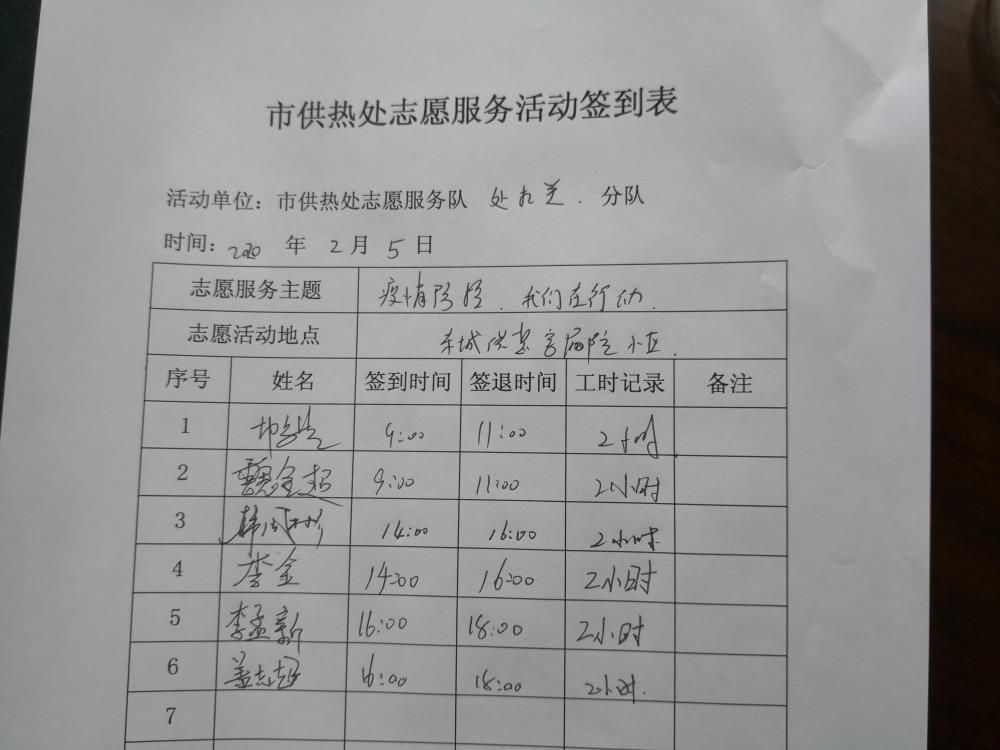 市供热处志愿服务活动签到表
活动单位：市供热处志愿服务队 处机关 分队
时间：2020 年 2 月 5 日
志愿服务主题 疫情防控，我们在行动。
志愿活动地点 东城供热宿舍 小区。
序号 姓名 签到时间 签退时间 工时记录 备注
1 9:00 11:00 2小时
2 魏金超 9:00 11:00 2小时
3 韩 彬 14:00 16:00 2小时
4 李金 14:00 16:00 2小时
5 李孟新 16:00 18:00 2小时
6 盖志超 16:00 18:00 2小时.
7